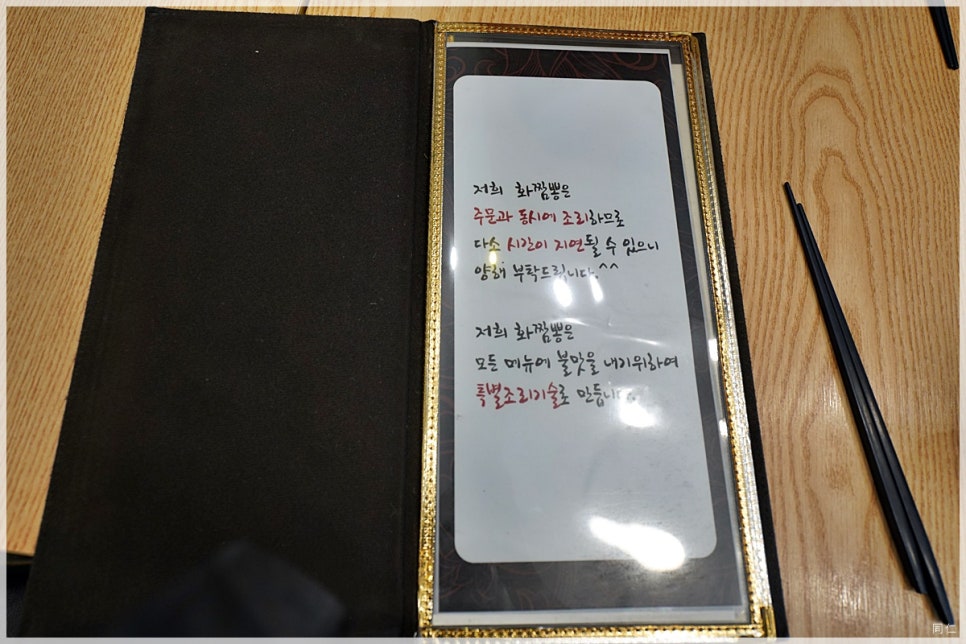 저희 화짬뽕은
주문과 동시에 조리하므로
다소 시간이 지연될 수 있으니
양해 부탁드립니다.^^
저희 화짬뽕은
모든 메뉴에 불맛을 내기위하여
특별조리기술로 만듭니다.
同仁